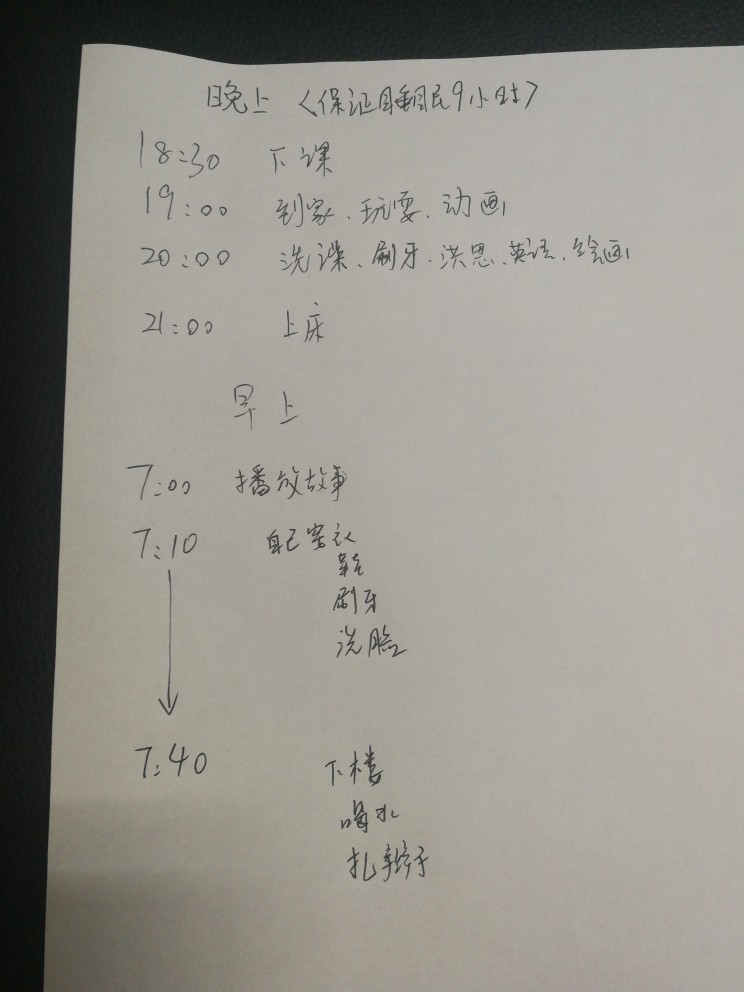 晚上 〈保证睡眠9小时〉
18:30 下课
19:00 到家、玩耍、动画
20:00 洗澡、刷牙、洪恩、英语、绘画
21:00 上床
早上
7:00 播放故事
7:10 自己穿衣
鞋
刷牙
洗脸
7:40 下楼
喝水
扎辫子